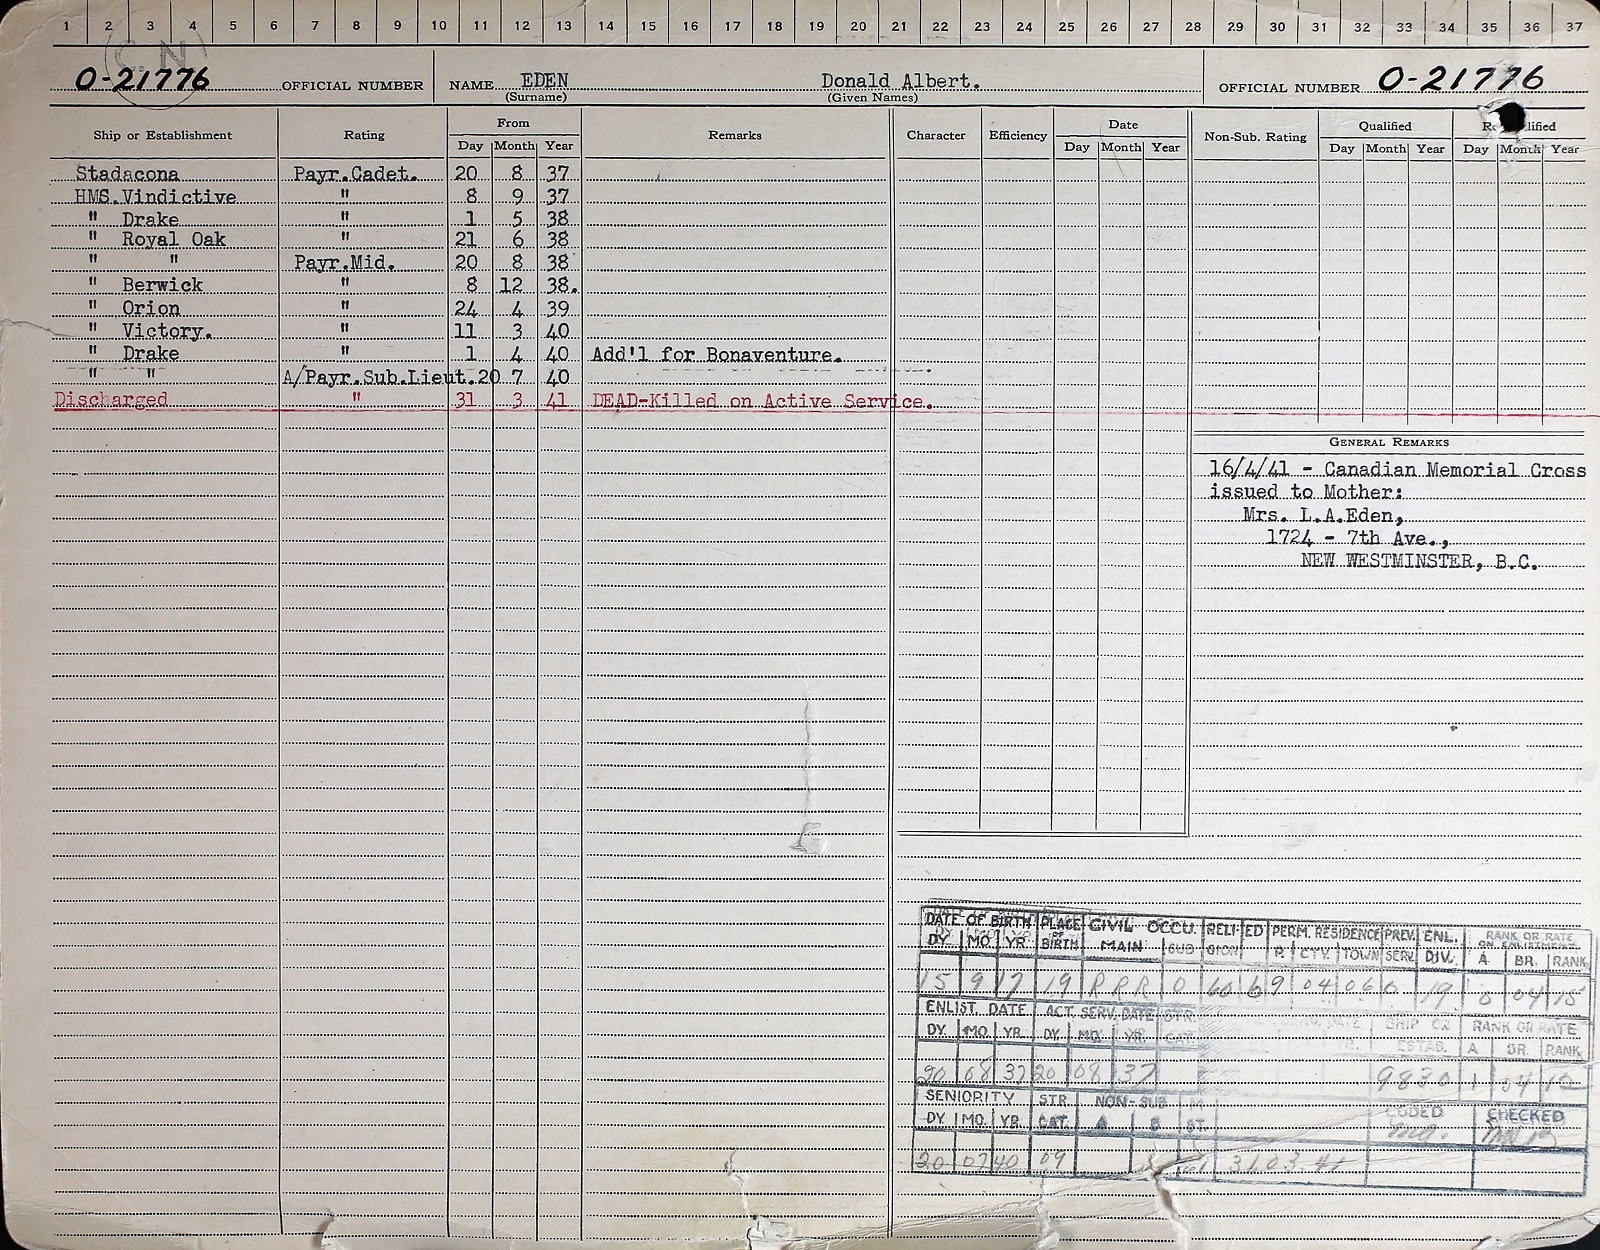 1 2 3 4 5 6 7 8 9 10 11 12 13 14 15 16 17 18 19 20 21 22 23 24 25 26 27 28 29 30 31 32 33 34 35 36 37
C.N
O-21776 OFFICIAL NUMBER NAME EDEN Donald Albert. OFFICIAL NUMBER O-21776
(Surname) (Given Names)
Ship or Establishment Rating From Remarks Character Efficiency Date Non-Sub. Rating Qualified
Day Month Year Day Month Year Day Month Year Day Month Year
Stadacona Payr.Cadet. 20 8 37
HMS.Vindictive " 8 9 37
" Drake " 1 5 38
" Royal Oak " 21 6 38
" " Payr.Mid. 20 8 38
" Berwick " 8 12 38.
" Orion " 24 4 39
" Victory. " 11 3 40
" Drake " 1 4 40 Add'l for Bonaventure.
" " A/Payr.Sub.Lieut. 20 7 40
Discharged " 31 3 41 DEAD-Killed on Active Service.
GENERAL REMARKS
16/4/41 - Canadian Memorial Cross
issued to Mother:
Mrs. L.A.Eden,
1724 - 7th Ave.,
NEW WESTMINSTER, B.C.
DATE OF BIRTH PLACE OF BIRTH CIVIL OCCU. RELIGION ED PERM. RESIDENCE PREV. SERV. ENL. DIV. RANK OR RATE ON ENLISTMENT
DY. MO. YR. MAIN SUB P. CTY. TOWN A. BR. RANK
15 9 17 19 RRR 0 60 6 9 04 06 0 19 0 04 15
ENLIST. DATE ACT. SERV. DATE STR. CAT. DATE SHIP OR ESTAB. RANK OR RATE
DY. MO. YR. DY. MO. YR. A BR. RANK
20 08 37 20 08 37 9830 1 04 12
SENIORITY STR. CAT. NON-SUB CODED CHECKED
DY. MO. YR. A B ST.
20 07 40 09 31 03 41